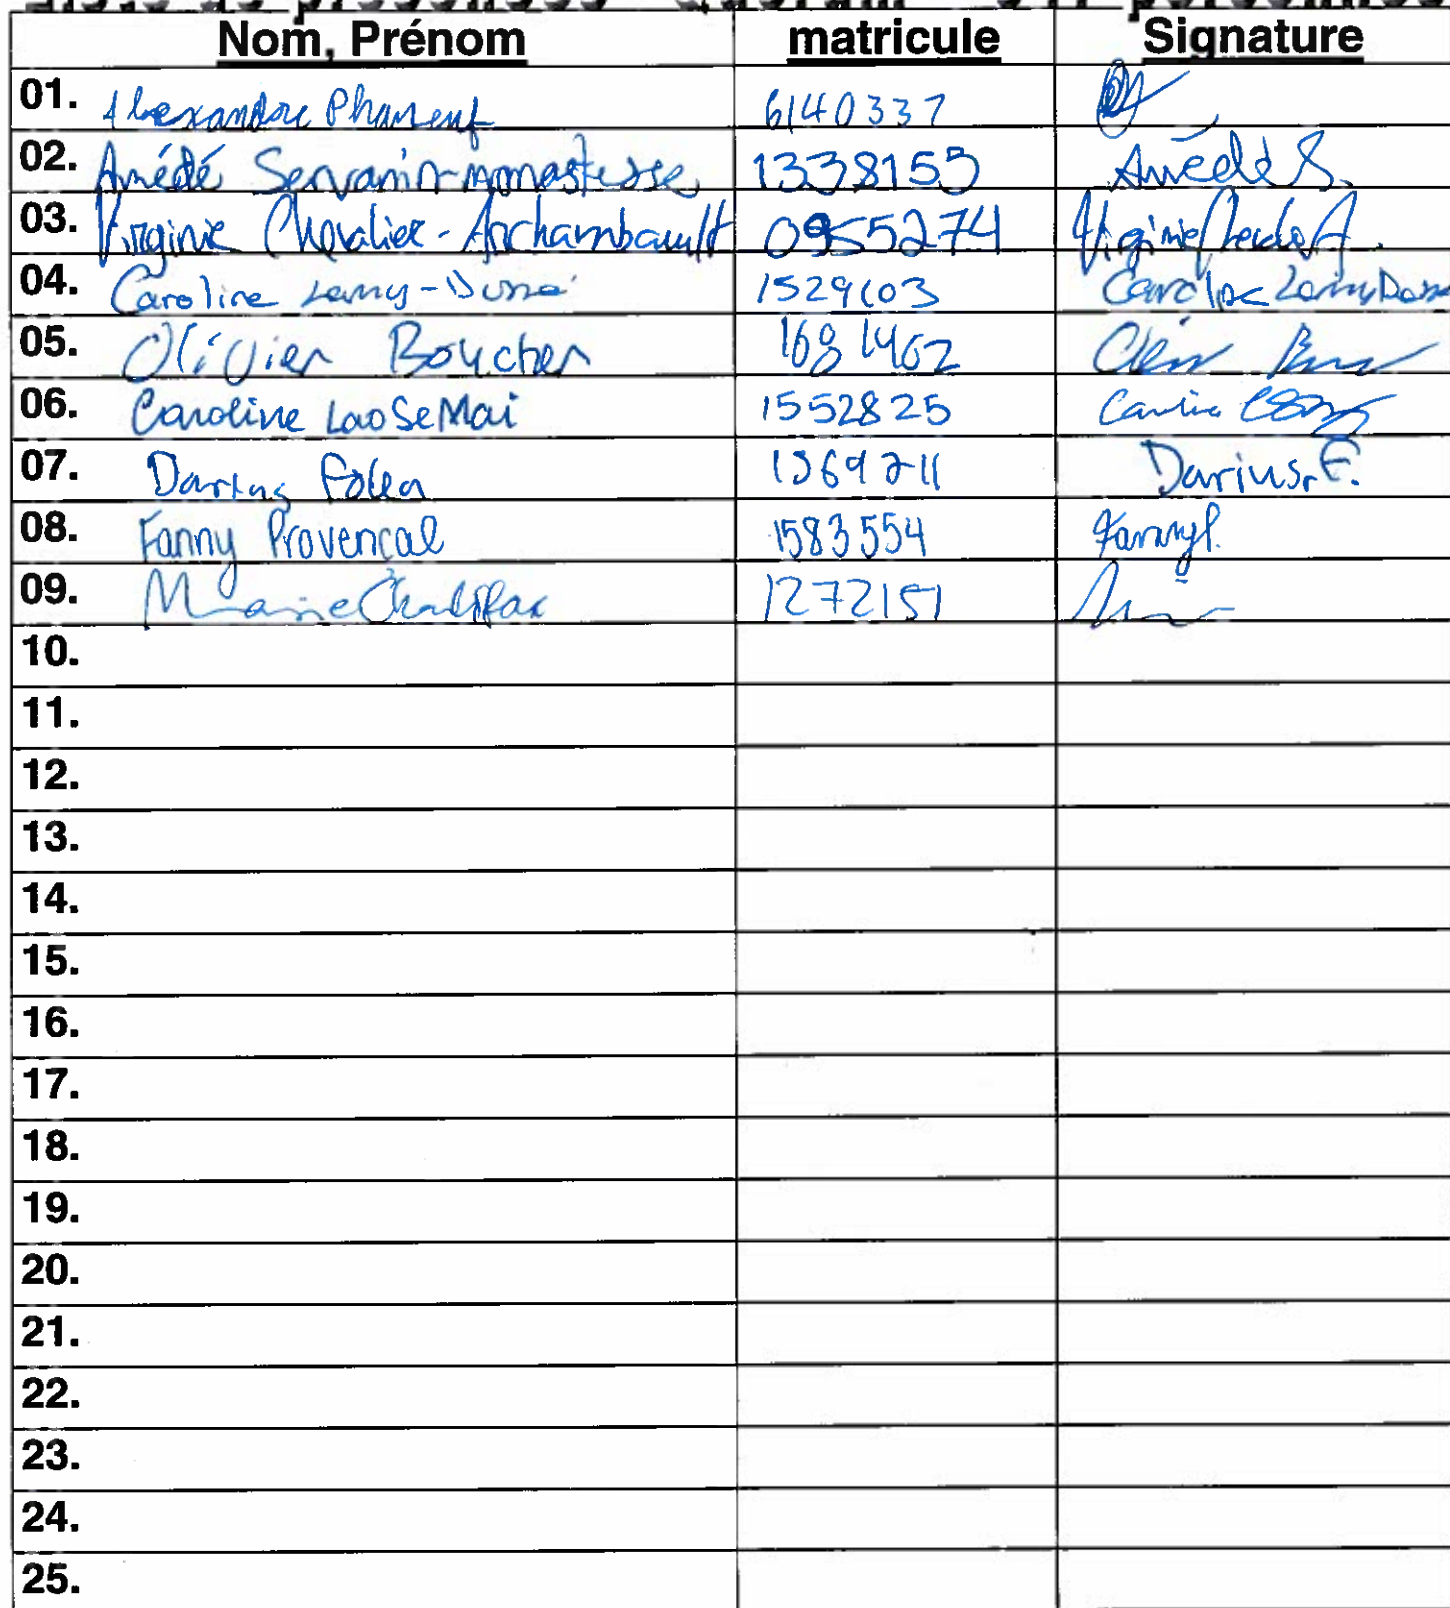 Nom, Prénom matricule Signature
01. Alexandre Phaneuf 6140337
02. Amédé Servanin-monastesse 1338155 Amédé S.
03. Virginie Chevalier-Archambault 0955274 Virginie A.
04. Caroline 1529603 Caroline
05. Olivier Boucher 1681462
06. Caroline LaoSeMai 1552825
07. Darius 1369211 Darius. F.
08. Fanny Provençal 1583554 Fanny P.
09. Marie Chalifax 1272151
10.
11.
12.
13.
14.
15.
16.
17.
18.
19.
20.
21.
22.
23.
24.
25.